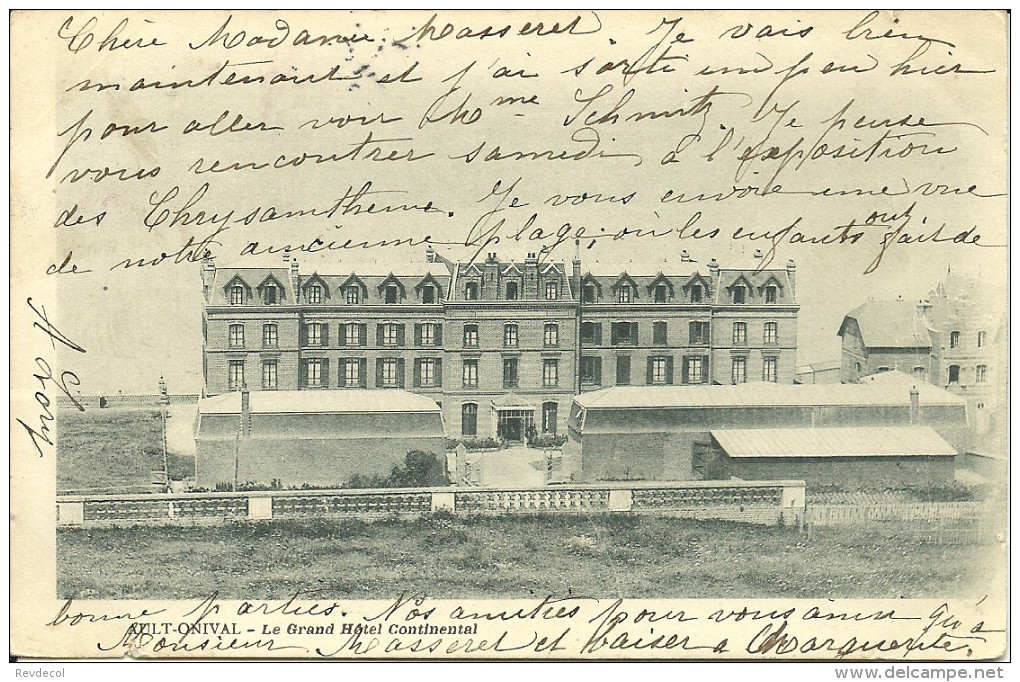 Chère Madame Masseret. Je vais bien
maintenant et j'ai sorti un peu hier
pour aller voir Mme Schmitz. Je pense
vous rencontrer samedi à l'exposition
des Chrysanthème. Je vous envoie une vue
de notre ancienne plage, où les enfants ont fait de
bonne parties. Nos amitiés pour vous ainsi qu'à
Monsieur Masseret et baiser à Marguerite.
AULT-ONIVAL - Le Grand Hôtel Continental
Revdecol
www.delcampe.net